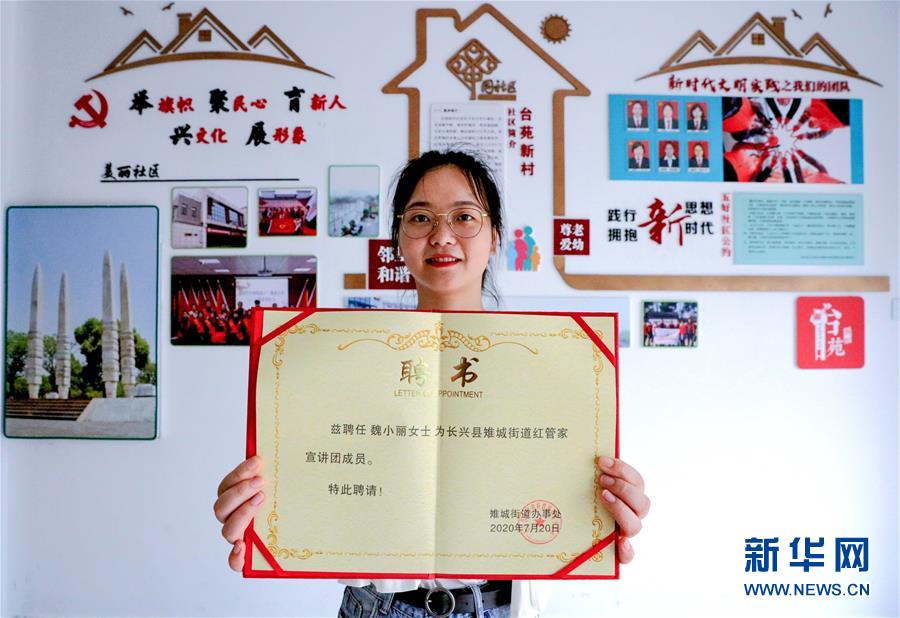 举旗帜 聚民心 育新人
兴文化 展形象
美丽社区
社区简介
台苑新村
邻里
和谐
尊老
爱幼
新时代文明实践之我们的团队
践行
拥抱
新
思想
时代
五好社区公约
台苑
聘书
LETTER OF APPOINTMENT
兹聘任 魏小丽女士 为长兴县雉城街道红管家
宣讲团成员。
特此聘请！
雉城街道办事处
2020年7月20日
新华网
WWW.NEWS.CN